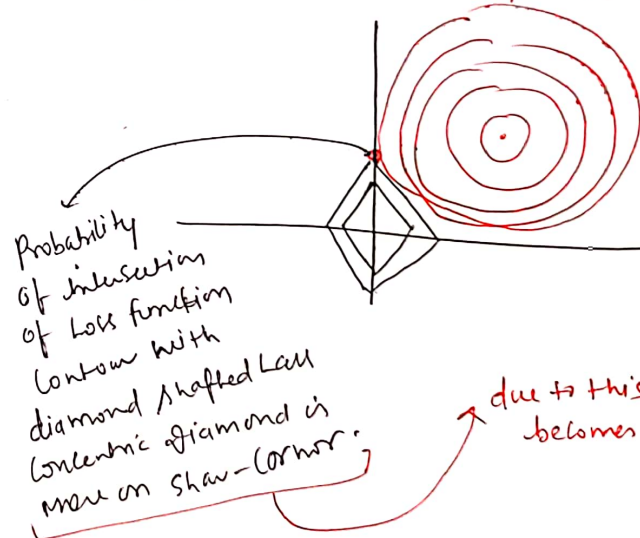 Probability
of intersection
of Loss function
Contour with
diamond shafted
Concentric diamond is
more on
due to this
becomes